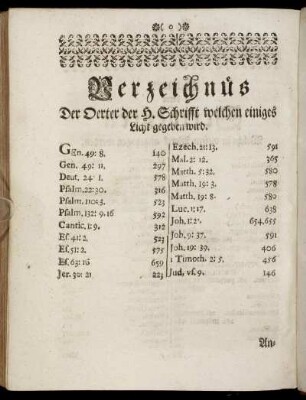 ( o )
Verzeichnüs
Der Oerter der H. Schrifft welchen einiges
Liecht gegeben wird.
GEn. 49: 8. 140
Gen. 49: 11. 297
Deut. 24: 1. 578
Psalm. 22:30. 316
Psalm. 110:3. 523
Psalm. 132: 9.16 592
Cantic. 1:9. 312
Es. 41: 2. 523
Es. 51: 2. 575
Es. 63: 16 659
Jer. 30: 21 223
Ezech. 21:13. 591
Mal. 2: 12. 365
Matth. 5:32. 580
Matth. 19: 3. 578
Matth. 19: 8. 580
Luc. 1:17. 638
Joh. 1:21. 654,655
Joh. 9: 37. 591
Joh. 19: 39. 406
1 Timoth. 2: 5. 456
Jud, vs. 9. 146
An-